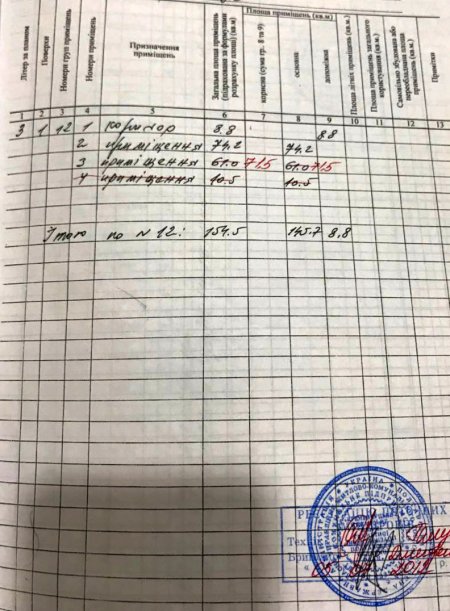 Літер за планом
Поверхи
Номери груп приміщень
Номери приміщень
Призначення приміщень
Загальна площа приміщень (підрахована за формулами розрахунку площі) (кв.м)
Площа приміщень (кв.м)
корисна (сума гр. 8 та 9)
основна
допоміжна
Площа літніх приміщень (кв.м.)
Площа приміщень загального користування (кв.м.)
Самовільно збудована або переобладнана площа приміщень (кв.м)
Примітки
1 2 3 4 5 6 7 8 9 10 11 12 13
3 1 12 1 коридор 8.8 8.8
2 приміщення 74.2 74.2
3 приміщення 61.0 71,5 61.0 71,5
4 приміщення 10.5 10.5
Итого по N 12: 154.5 145.7 8,8
УКРАЇНА
Тех
Бриг
2019 р.